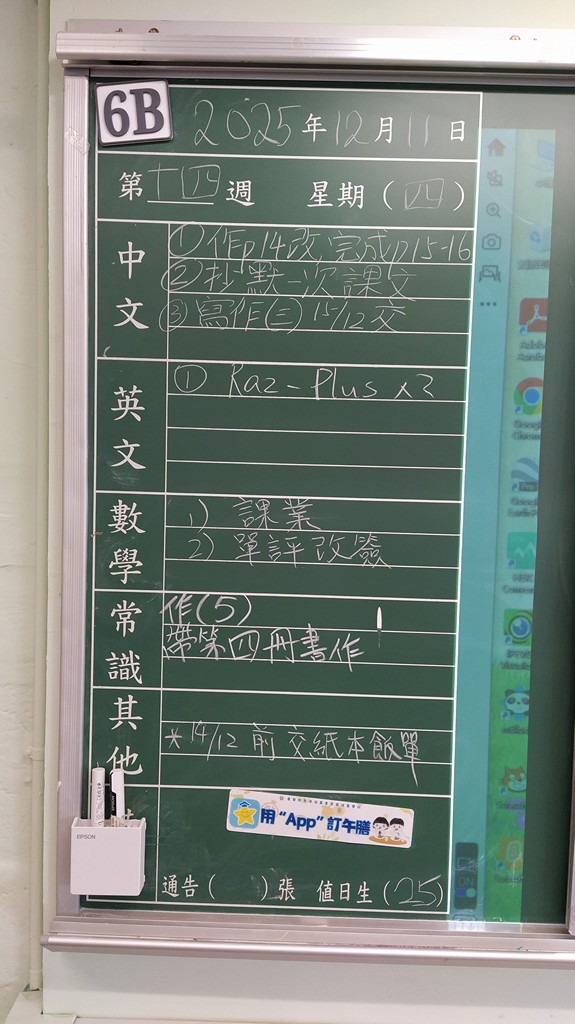 6B
2025年12月11日
第十四週 星期(四)
中文
①作p14改,完成p15-16
②抄默一次課文
③寫作(三) 15/12交
英文
① Raz-Plus x2
數學
1) 課業
2) 單評改簽
常識
作(5)
帶第四冊書作
其他
*14/12前交紙本飯單
用“App”訂午膳
EPSON
通告( )張 值日生(25)